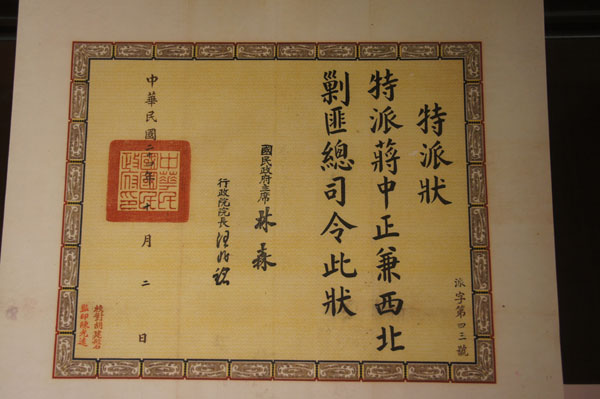 特派狀
特派蔣中正兼西北
剿匪總司令此狀
國民政府主席 林森
行政院院長 汪兆銘
中華民國二十四年十月二日
中華民國國民政府印
派字第四三號
校對胡建
監印陳光遠